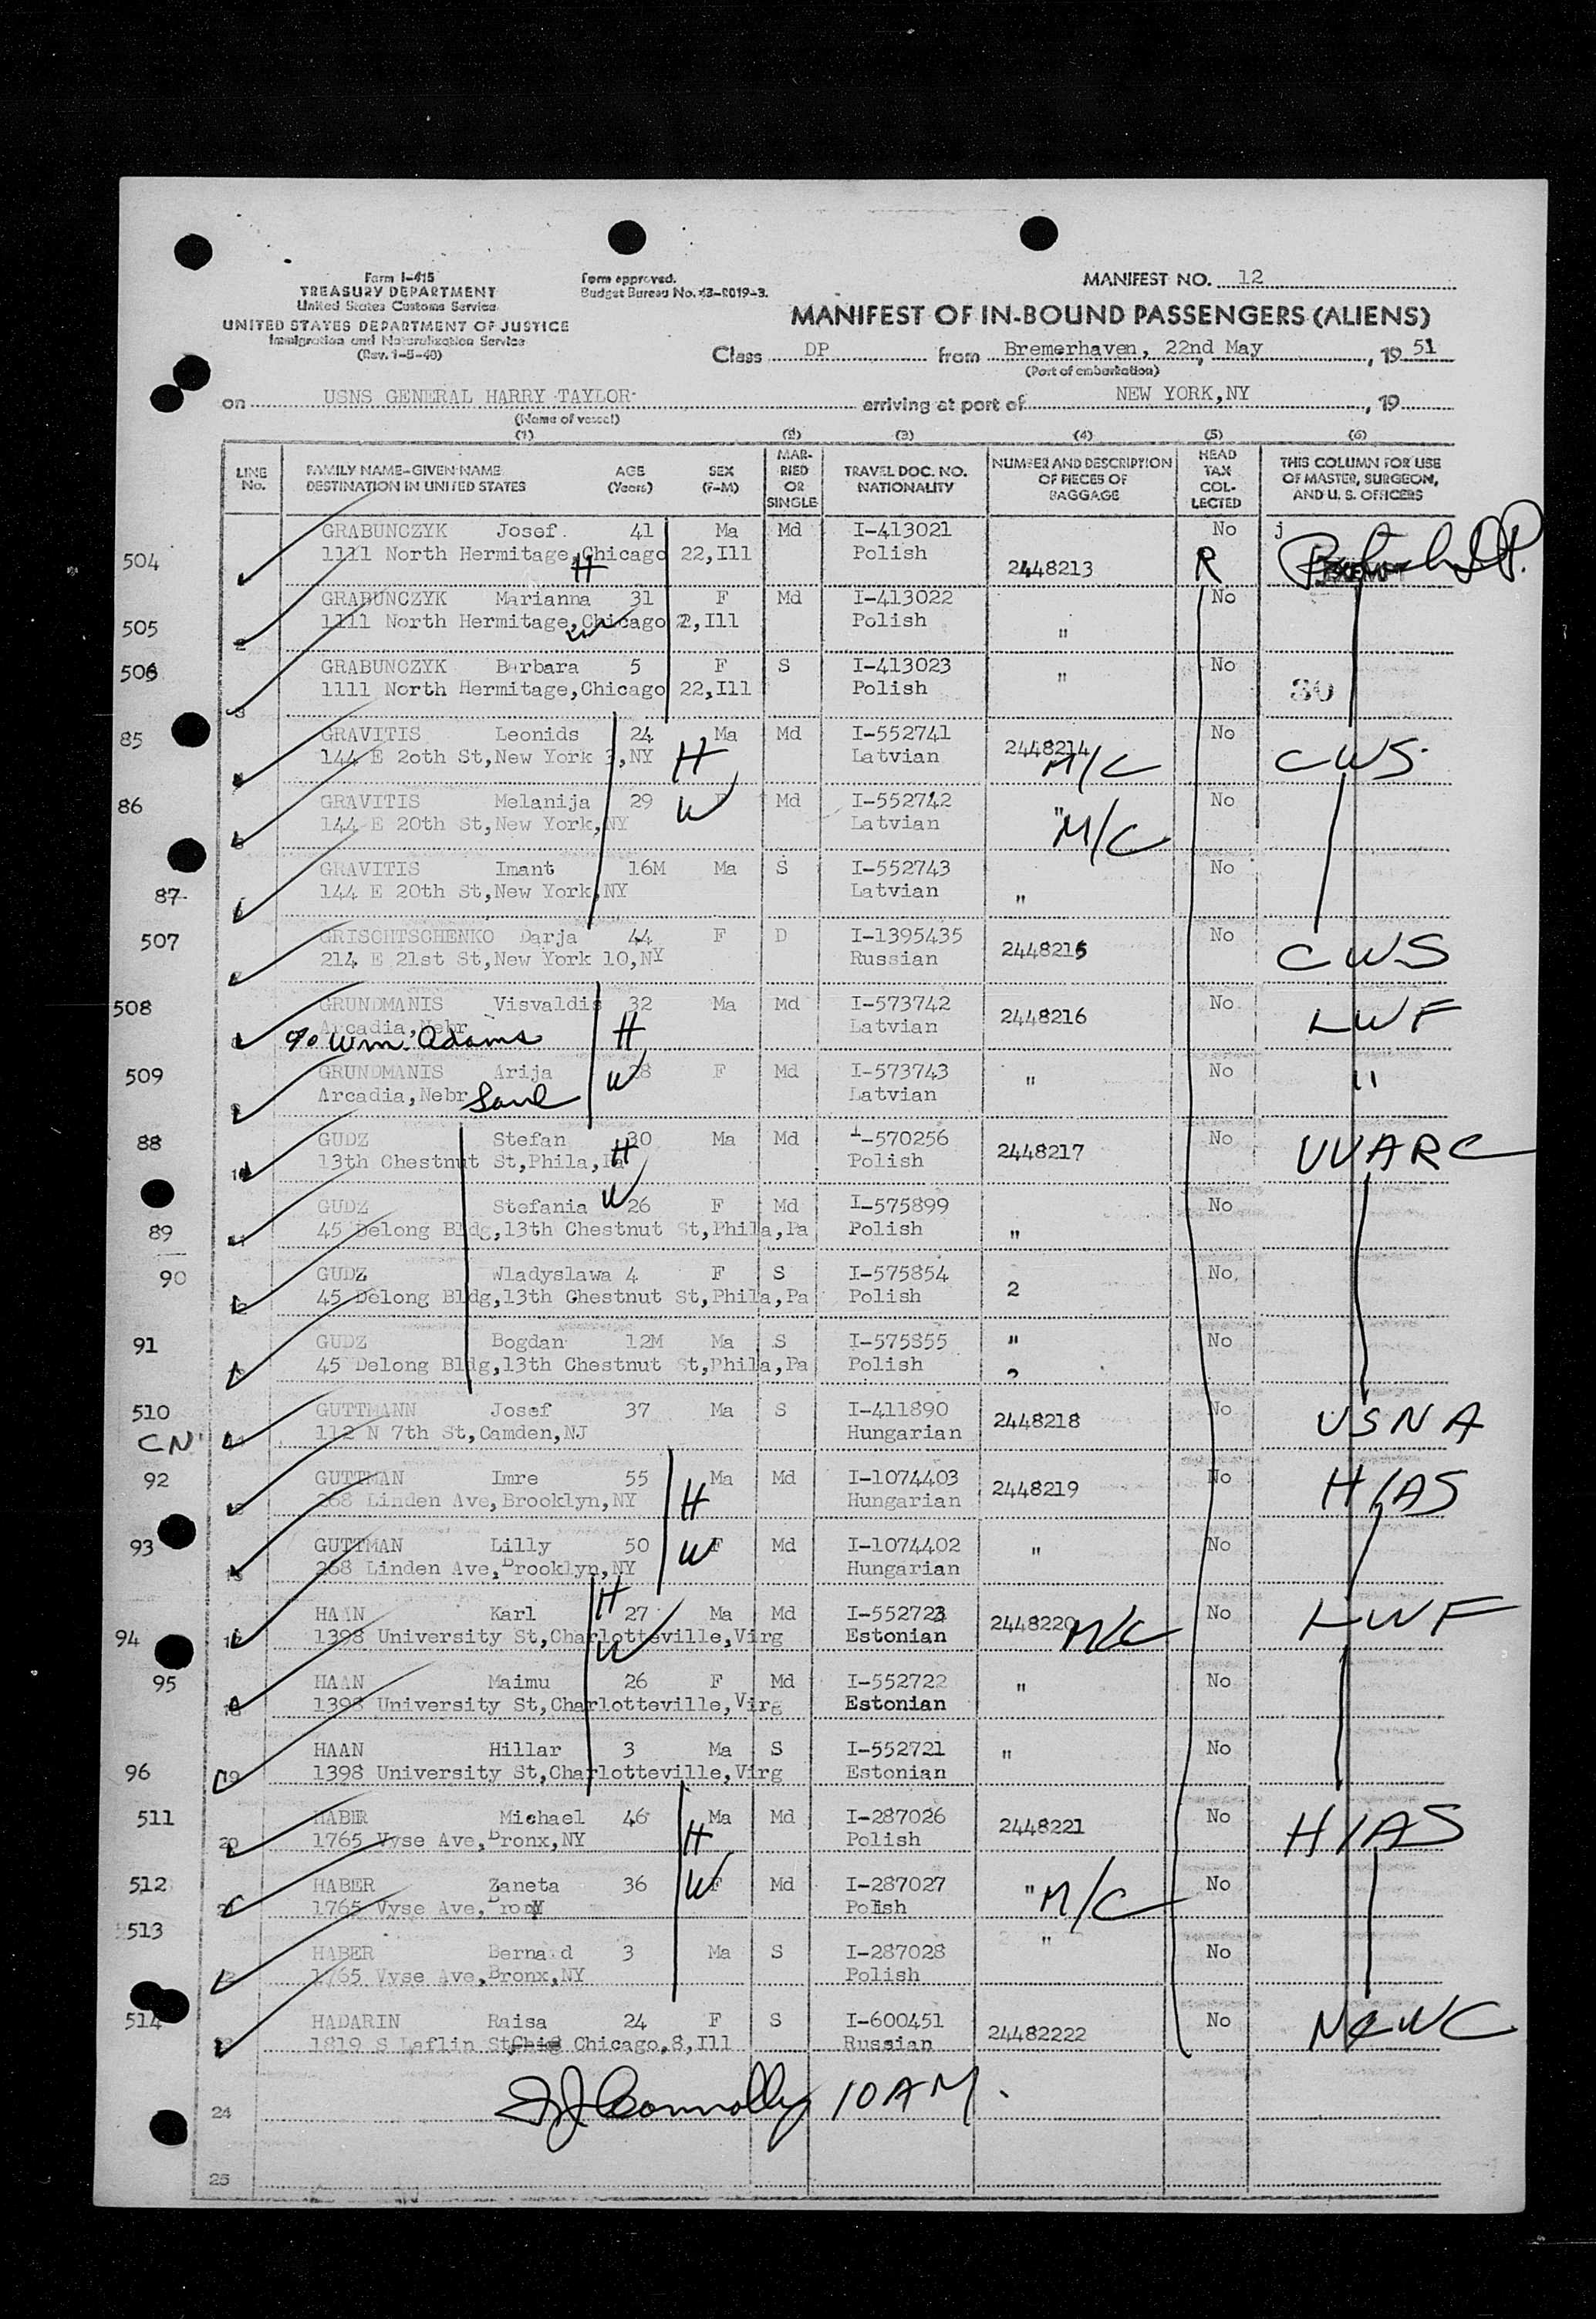 Form I-415
TREASURY DEPARTMENT
United States Customs Service
UNITED STATES DEPARTMENT OF JUSTICE
Immigration and Naturalization Service
(Rev. 1-5-40)
Form approved.
Budget Bureau No. 43-R019-3.
MANIFEST NO. 12
MANIFEST OF IN-BOUND PASSENGERS (ALIENS)
Class DP from Bremerhaven, 22nd May, 19 51
(Port of embarkation)
on USNS GENERAL HARRY TAYLOR arriving at port of NEW YORK,NY, 19
(Name of vessel)
(1) (2) (3) (4) (5) (6)
LINE No. FAMILY NAME-GIVEN NAME DESTINATION IN UNITED STATES AGE (Years) SEX (F-M) MARRIED OR SINGLE TRAVEL DOC. NO. NATIONALITY NUMBER AND DESCRIPTION OF PIECES OF BAGGAGE HEAD TAX COLLECTED THIS COLUMN FOR USE OF MASTER, SURGEON, AND U. S. OFFICERS
GRABUNCZYK Josef 41 Ma Md I-413021 No j
504 1111 North Hermitage,Chicago 22,Ill Polish 2448213 R
H
GRABUNCZYK Marianna 31 F Md I-413022 No
505 1111 North Hermitage,Chicago 2,Ill Polish "
W
506 GRABUNCZYK Barbara 5 F S I-413023 No
1111 North Hermitage,Chicago 22,Ill Polish " 30
85 GRAVITIS Leonids 24 Ma Md I-552741 No
144 E 20th St,New York 3,NY H Latvian 2448214 M/C CWS
86 GRAVITIS Melanija 29 W F Md I-552742 No
144 E 20th St,New York,NY Latvian " M/C
GRAVITIS Imant 16M Ma S I-552743 No
87 144 E 20th St,New York,NY Latvian "
507 GRISCHTSCHENKO Darja 44 F D I-1395435 No
214 E 21st St,New York 10,NY Russian 2448215 CWS
508 GRUNDMANIS Visvaldis 32 Ma Md I-573742 No
Arcadia,Nebr Latvian 2448216 LWF
c/o Wm. Adams H
509 GRUNDMANIS Arija 28 W F Md I-573743 " No "
Arcadia,Nebr Same Latvian
88 GUDZ Stefan 30 Ma Md I-570256 No
13th Chestnut St,Phila,Pa H Polish 2448217 UUARC
GUDZ Stefania W 26 F Md I-575899 No
89 45 Delong Bldg,13th Chestnut St,Phila,Pa Polish "
90 GUDZ Wladyslawa 4 F S I-575854 No
45 Delong Bldg,13th Chestnut St,Phila,Pa Polish 2
91 GUDZ Bogdan 12M Ma S I-575855 " No
45 Delong Bldg,13th Chestnut St,Phila,Pa Polish 2
510 GUTTMANN Josef 37 Ma S I-411890 No
CN 112 N 7th St,Camden,NJ Hungarian 2448218 USNA
92 GUTTMAN Imre 55 Ma Md I-1074403 No
268 Linden Ave,Brooklyn,NY H Hungarian 2448219 HIAS
93 GUTTMAN Lilly 50 W F Md I-1074402 No
268 Linden Ave,Brooklyn,NY Hungarian "
HAAN Karl H 27 Ma Md I-552723 No
94 1398 University St,Charlotteville,Virg Estonian 2448220 M/C LWF
W
95 HAAN Maimu 26 F Md I-552722 No
1398 University St,Charlotteville,Virg Estonian "
HAAN Hillar 3 Ma S I-552721 No
96 19 1398 University St,Charlotteville,Virg Estonian "
511 HABER Michael 46 Ma Md I-287026 No
20 1765 Vyse Ave,Bronx,NY H Polish 2448221 HIAS
512 HABER Zaneta 36 W F Md I-287027 No
1765 Vyse Ave, Polish " M/C
513 HABER Berna d 3 Ma S I-287028 " No
1765 Vyse Ave,Bronx,NY Polish
514 HADARIN Raisa 24 F S I-600451 No
1819 S Laflin St, Chicago,8,Ill Russian 24482222 NCWC
10 AM.
24
25